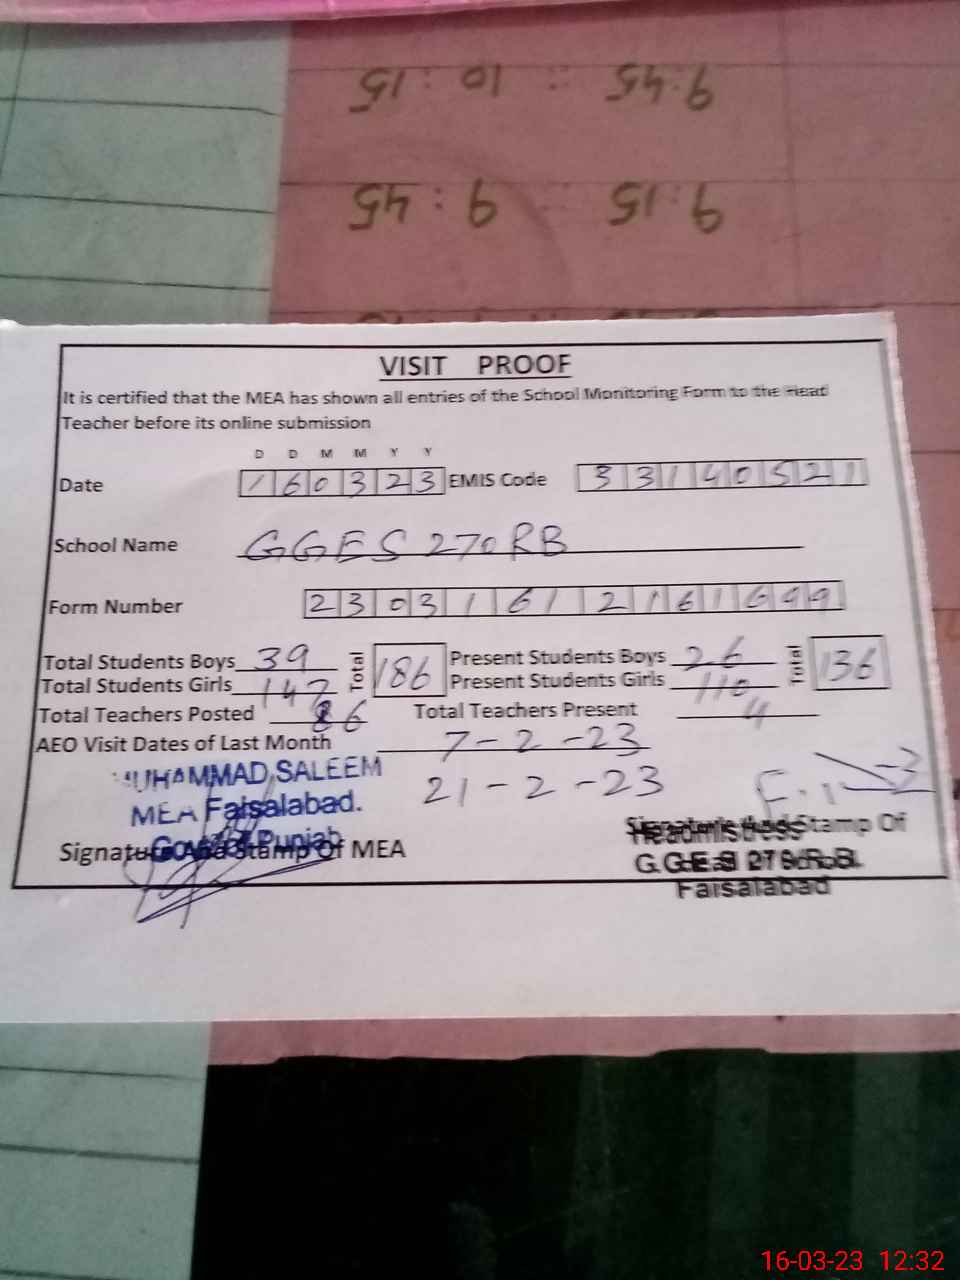 9:45 : 10:15
9:15 - 9:45
VISIT PROOF
It is certified that the MEA has shown all entries of the School Monitoring Form to the Head
Teacher before its online submission
D D M M Y Y
Date 160323 EMIS Code 33140521
School Name GGES 270 RB
Form Number
Total Students Boys 39 Total 186 Present Students Boys 26 Total 136
Total Students Girls 147 Present Students Girls 110
Total Teachers Posted 6 Total Teachers Present 4
AEO Visit Dates of Last Month 7-2-23
21-2-23
MUHAMMAD SALEEM
MEA Faisalabad.
Govt of Punjab
Signature And Stamp Of MEA
Signature And Stamp Of
Headmistress
G.G.E.S 270 R.B.
Faisalabad
16-03-23 12:32